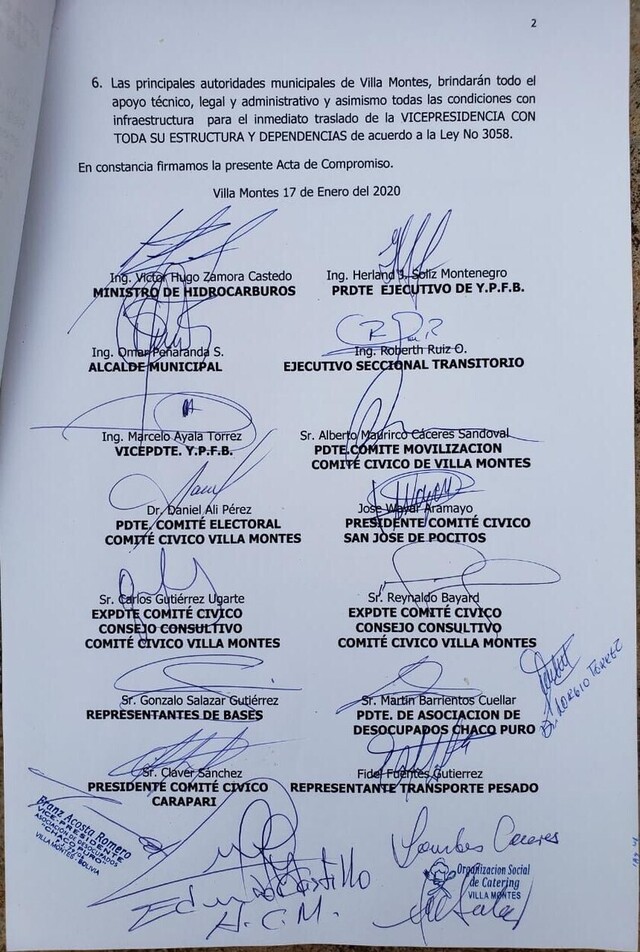 2
6. Las principales autoridades municipales de Villa Montes, brindarán todo el
apoyo técnico, legal y administrativo y asimismo todas las condiciones con
infraestructura para el inmediato traslado de la VICEPRESIDENCIA CON
TODA SU ESTRUCTURA Y DEPENDENCIAS de acuerdo a la Ley No 3058.
En constancia firmamos la presente Acta de Compromiso.
Villa Montes 17 de Enero del 2020
Ing. Victor Hugo Zamora Castedo
MINISTRO DE HIDROCARBUROS
Ing. Herland J. Soliz Montenegro
PRDTE EJECUTIVO DE Y.P.F.B.
Ing. Omar Peñaranda S.
ALCALDE MUNICIPAL
Ing. Roberth Ruiz O.
EJECUTIVO SECCIONAL TRANSITORIO
Ing. Marcelo Ayala Torrez
VICEPDTE. Y.P.F.B.
Sr. Alberto Maurirco Cáceres Sandoval
PDTE.COMITE MOVILIZACION
COMITÉ CIVICO DE VILLA MONTES
Dr. Daniel Ali Pérez
PDTE. COMITÉ ELECTORAL
COMITÉ CIVICO VILLA MONTES
Jose Wayar Aramayo
PRESIDENTE COMITÉ CIVICO
SAN JOSE DE POCITOS
Sr. Carlos Gutiérrez Ugarte
EXPDTE COMITÉ CIVICO
CONSEJO CONSULTIVO
COMITÉ CIVICO VILLA MONTES
Sr. Reynaldo Bayard
EXPDTE COMITÉ CIVICO
CONSEJO CONSULTIVO
COMITÉ CIVICO VILLA MONTES
Sr. Gonzalo Salazar Gutiérrez
REPRESENTANTES DE BASES
Sr. Martin Barrientos Cuellar
PDTE. DE ASOCIACION DE
DESOCUPADOS CHACO PURO
Sr. Claver Sánchez
PRESIDENTE COMITÉ CIVICO
CARAPARI
Fidel Fuentes Gutierrez
REPRESENTANTE TRANSPORTE PESADO
Branz Acosta Romero
VICE-PRESIDENTE
ASOCIACION DE DESOCUPADOS
CHACO PURO
VILLA MONTES BOLIVIA
Castillo
H.C.M.
Lourdes Caceres
Organizacion Social
de Catering
VILLA MONTES